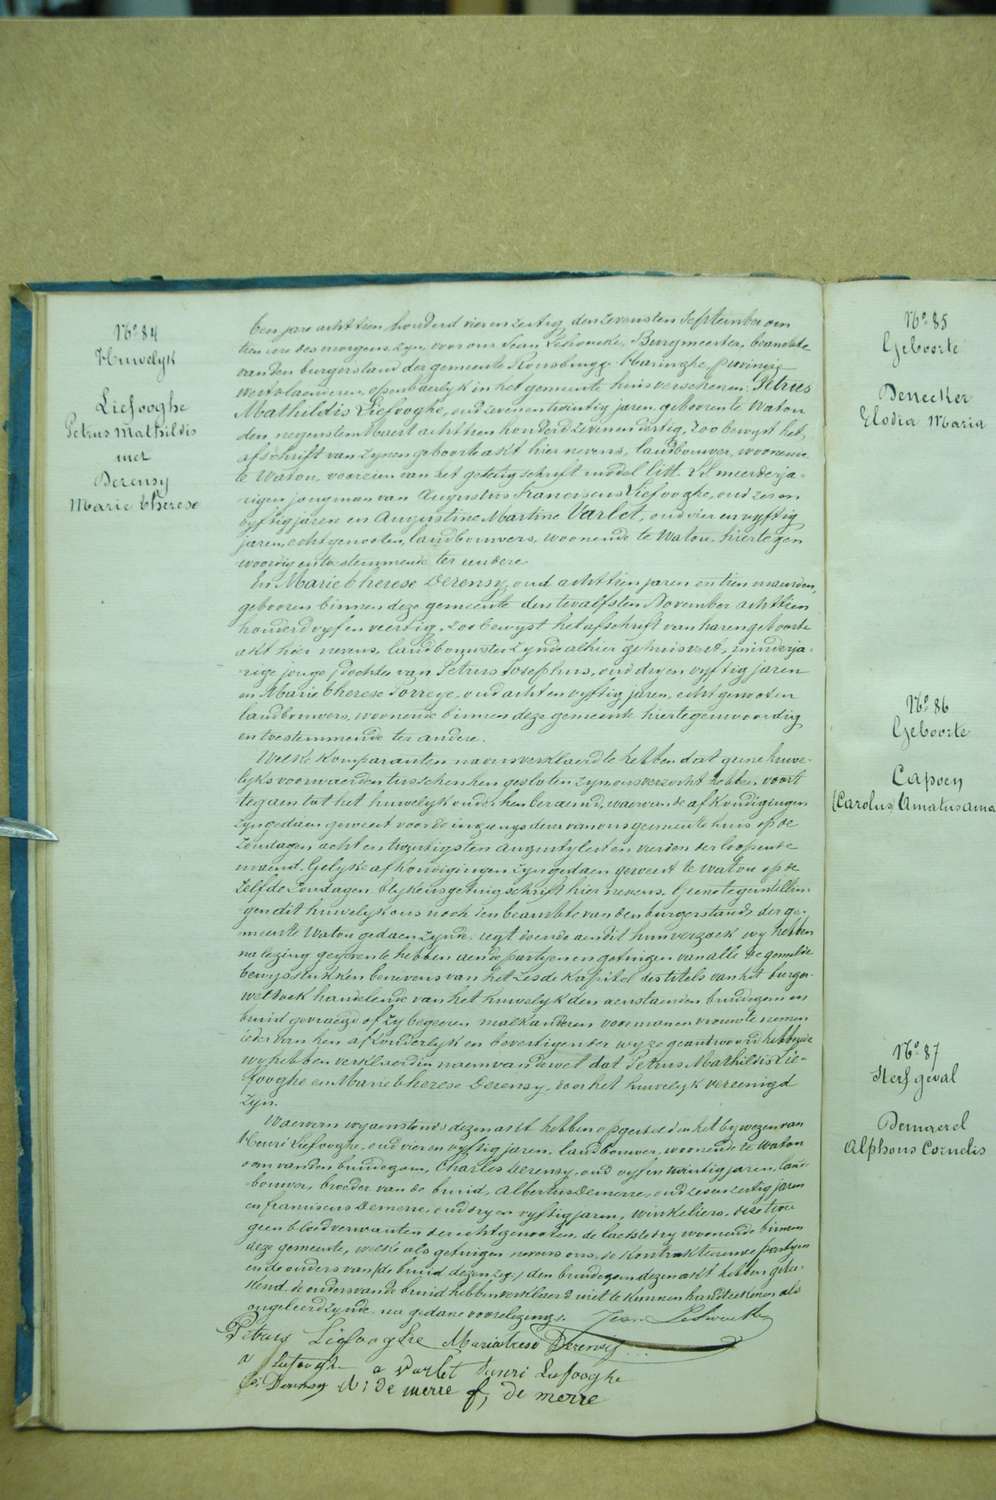 No. 84
Huwelyk
Liefooghe
Petrus Mathildis
met
Derensy
Marie Therese
Ten jare acht tien honderd vier en zestig, den zevensten September om
tien ure des morgens zyn voor ons Jean Burgmeester, beambte
van den burgerstand der gemeente Rousbrugge-Haringhe, provincie
Westvlaenderen, openbaerlyk in het gemeente huis verschenen: Petrus
Mathildis Liefooghe, oud zeven en twintig jaren, geboren te Watou
den negensten Maert acht tien honderd zeven en dertig, zoo bewyst het
afschrift van zynen geboorte akt hier nevens, landbouwer, woonende
te Watou, voorzien van het getuigschrift model litt. meerderja-
rigen jongman van Augustus Franciscus Liefooghe, oud zes en
vyftig jaren en Augustine Martine Varlet, oud vier en vyftig
jaren, echtgenooten, landbouwers, woonende te Watou, hier tegen
woordig en toestemmende ter eendere
En Marie Therese Derensy, oud acht tien jaren en tien maenden,
geboren binnen deze gemeente den twaelfsten November acht tien
honderd vyf en veertig, zoo bewyst het afschrift van haren geboorte
akt hier nevens, landbouwster zynde alhier gehuisvest, minderja-
rige jonge dochter van Petrus Josephus, oud dry en vyftig jaren
en Marie Therese Torreye, oud acht en vyftig jaren, echtgenooten
landbouwers, woonende binnen deze gemeente hier tegenwoordig
en toestemmende ter andere.
Welke komparanten na ons verklaerd te hebben dat geene huwe-
lyks voorwaerden tusschen hen gesloten zyn, ons verzocht hebben voort
te gaen tot het huwelyk onder hen beraemd, waer van de afkondigingen
zyn gedaen geweest voor de ingangs deur van ons gemeente huis op de
zondagen acht en twintigsten Augusty lest en vierden der loopende
maend. Gelyke afkondigingen zyn gedaen geweest te Watou op de
zelfde zondagen blykens getuigschrift hier nevens. Geene tegenstellin-
gen dit huwelyk ons noch den beambte van den burgerstand der ge-
meente Watou gedaen zynde, regt doende aen dit hun verzoek, wy hebben
na lezing gegeven te hebben aen de partyen en getuigen van alle de gemelde
bewysstukken benevens van het zesde kapittel des titels van het burger-
wetboek handelende van het huwelyk den aenstaenden bruidegom en
bruid gevraegd of zy begeeren malkanderen voor man en vrouw te nemen
ieder van hen afzonderlyk en bevestigender wyze geantwoord hebbende
wy hebben verklaerd in naem van de wet dat Petrus Mathildis Lie-
fooghe en Marie Therese Derensy, door het huwelyk vereenigd
zyn.
Waervan wy aenstonds dezen akt hebben opgesteld in het bywezen van
Henri Liefooghe, oud vier en vyftig jaren, landbouwer, woonende te Watou
oom van den bruidegom, Charles Derensy, oud vyf en twintig jaren, land-
bouwer, broeder van de bruid, Albertus Demerre, oud zes en zestig jaren
en Franciscus Demerre, oud dry en vyftig jaren, winkeliers, deze twee
geen bloedverwanten der echtgenooten, de laetste dry woonende binnen
deze gemeente, welke als getuigen nevens ons, de kontrakteerende partyen
en de ouders van den bruidegom dezen akt hebben getee-
kend, de ouders van de bruid hebben verklaerd niet te kunnen handteekenen als
ongeleerd zynde, na gedane voorlezing.
Petrus Liefooghe Maria trese Derensy
a liefooghe a Varlet Henri Liefooghe
Ch: Derensy A: de merre f, de merre
No. 85
Geboorte
Denecker
Elodia Maria
No. 86
Geboorte
Capoen
(Carolus) Amatus
No. 87
Sterfgeval
Demaerel
Alphons Cornelis